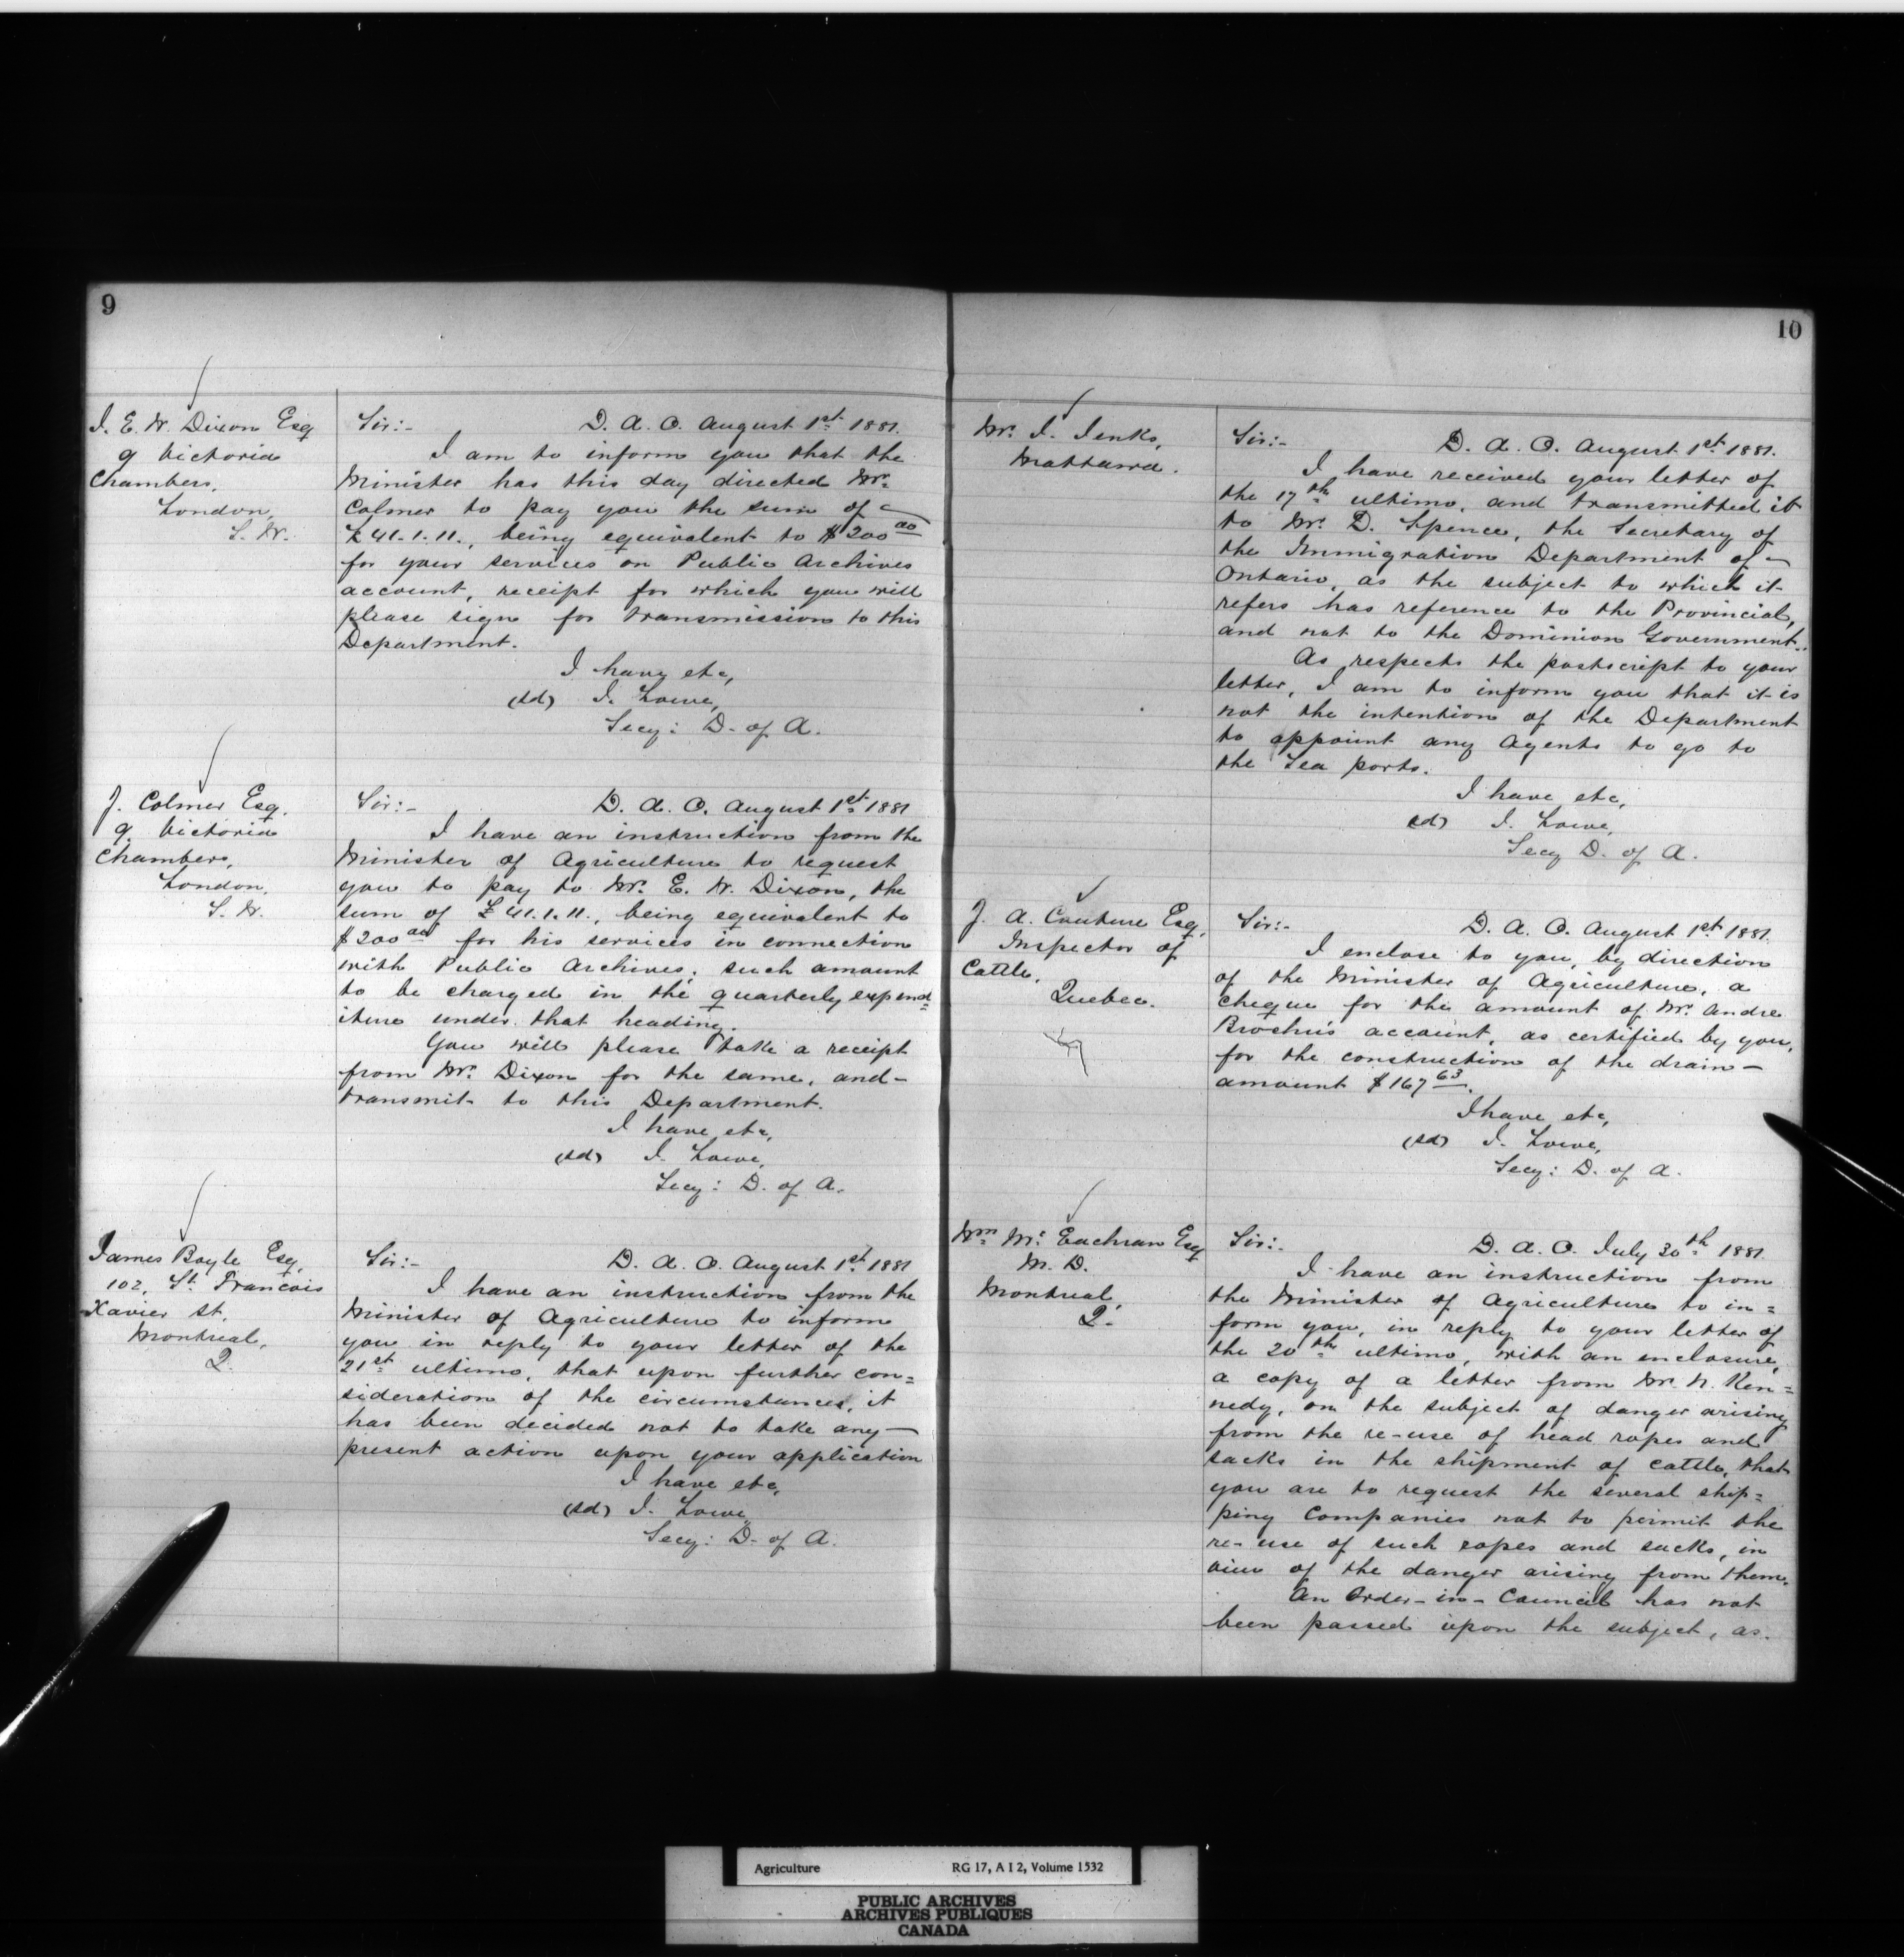 9
J. E. W. Dixon Esq
9 Victoria
Chambers,
London,
S. W.
Sir:- D. A. O. August 1st 1881.
I am to inform you that the
Minister has this day directed Mr.
Colmer to pay you the sum of
£41.1.11., being equivalent to $200 00
for your services on Public Archives
account, receipt for which you will
please sign for transmission to this
Department.
I have etc,
(sd) J. Lowe,
Secy: D. of A.
J. Colmer Esq.
9, Victoria
Chambers,
London,
S. W.
Sir:- D. A. O. August 1st 1881
I have an instruction from the
Minister of Agriculture to request
you to pay to Mr. E. W. Dixon, the
sum of £41.1.11., being equivalent to
$200 00 for his services in connection
with Public Archives; such amount
to be charged in the quarterly expend=
iture under that heading.
You will please take a receipt
from Mr. Dixon for the same, and-
transmit to this Department.
I have etc,
(sd) J. Lowe,
Secy: D. of A.
James Boyle Esq,
102, St. Francois
Xavier st.
Montreal,
Q.
Sir:- D. A. O. August 1st 1881
I have an instruction from the
Minister of Agriculture to inform
you in reply to your letter of the
21st ultimo, that upon further con=
sideration of the circumstances, it
has been decided not to take any-
present action upon your application
I have etc,
(sd) J. Lowe,
Secy: D. of A.
10
Mr. J. Jenks,
Mattawa.
Sir:- D. A. O. August 1st 1881.
I have received your letter of
the 17th ultimo, and transmitted it
to Mr. D. Spence, the Secretary of
the Immigration Department of
Ontario, as the subject to which it
refers has reference to the Provincial,
and not to the Dominion Government.
As respects the postscript to your
letter, I am to inform you that it is
not the intention of the Department
to appoint any Agents to go to
the Sea ports.
I have etc,
(sd) J. Lowe,
Secy D. of A.
J. A. Couture Esq,
Inspector of
Cattle,
Quebec.
Sir:- D. A. O. August 1st 1881.
I enclose to you, by direction
of the Minister of Agriculture, a
cheque for the amount of Mr. Andre
Brochu's account, as certified by you,
for the construction of the drain-
amount $167 63.
I have etc,
(sd) J. Lowe,
Secy: D. of A.
Wm Mc Eachran Esq
M. D.
Montreal,
Q.
Sir:- D. A. O. July 30th 1881.
I have an instruction from
the Minister of Agriculture to in=
form you, in reply to your letter of
the 20th ultimo, with an enclosure,
a copy of a letter from Mr. N. Ken=
nedy, on the subject of danger arising
from the re-use of head ropes and
sacks in the shipment of cattle, that
you are to request the several ship=
ping Companies not to permit the
re-use of such ropes and sacks, in
view of the danger arising from them.
An Order-in-Council has not
been passed upon the subject, as.
Agriculture RG 17, A I 2, Volume 1532
PUBLIC ARCHIVES
ARCHIVES PUBLIQUES
CANADA